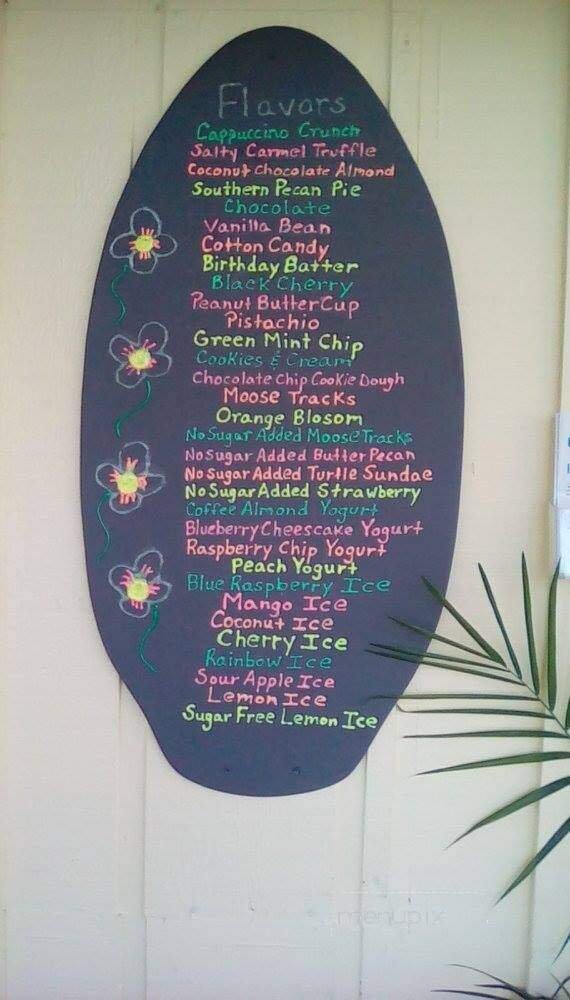 Flavors
Cappuccino Crunch
Salty Carmel Truffle
Coconut Chocolate Almond
Southern Pecan Pie
Chocolate
Vanilla Bean
Cotton Candy
Birthday Batter
Black Cherry
Peanut Butter Cup
Pistachio
Green Mint Chip
Cookies & Cream
Chocolate Chip Cookie Dough
Moose Tracks
Orange Blosom
No Sugar Added Moose Tracks
No Sugar Added Butter Pecan
No Sugar Added Turtle Sundae
No Sugar Added Strawberry
Coffee Almond Yogurt
Blueberry Cheescake Yogurt
Raspberry Chip Yogurt
Peach Yogurt
Blue Raspberry Ice
Mango Ice
Coconut Ice
Cherry Ice
Rainbow Ice
Sour Apple Ice
Lemon Ice
Sugar Free Lemon Ice
menupix